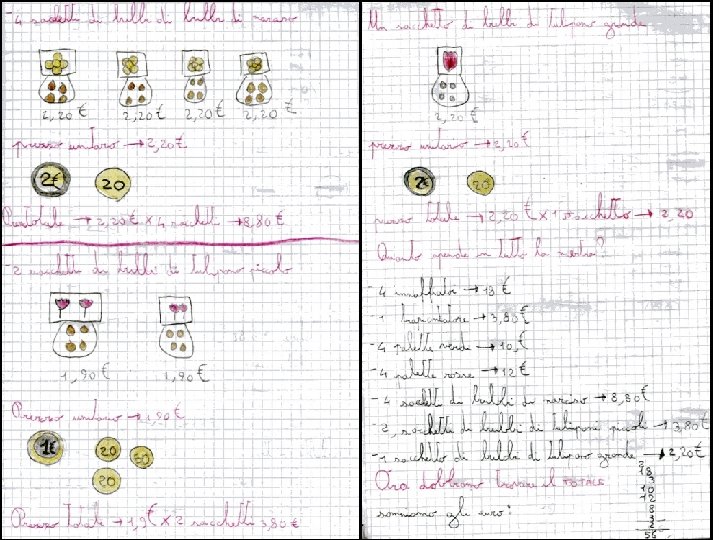 -4 sacchetti di bulbi di bulbi di narciso
2,20€ 2,20€ 2,20€ 2,20€
prezzo unitario → 2,20€
2€ 20
Prezzo totale → 2,20€ × 4 sacchetti → 8,80€
-2 sacchetti di bulbi di tulipano piccolo
1,90€ 1,90€
Prezzo unitario → 1,90€
1€ 20 20
20
Prezzo totale → 1,9€ × 2 sacchetti 3,80€
Un sacchetto di bulbi di tulipano grande
2,20€
prezzo unitario → 2,20€
2€ 20
prezzo totale → 2,20€ × 1 sacchetto → 2,20
Quanto spende in tutto la mostra?
-4 innaffiatoi → 18€
-1 trapiantatore → 3,80€
-4 palette verdi → 10,€
-4 palette rosse → 12€
-4 sacchetti di bulbi di narciso → 8,80€
-2, sacchetti di bulbi di tulipani piccoli → 3,80€
-1 sacchetto di bulbi di tulipano grande → 2,20€
Ora dobbiamo trovare il TOTALE
sommiamo gli euro:
18
3
10
12
8
3
2
56